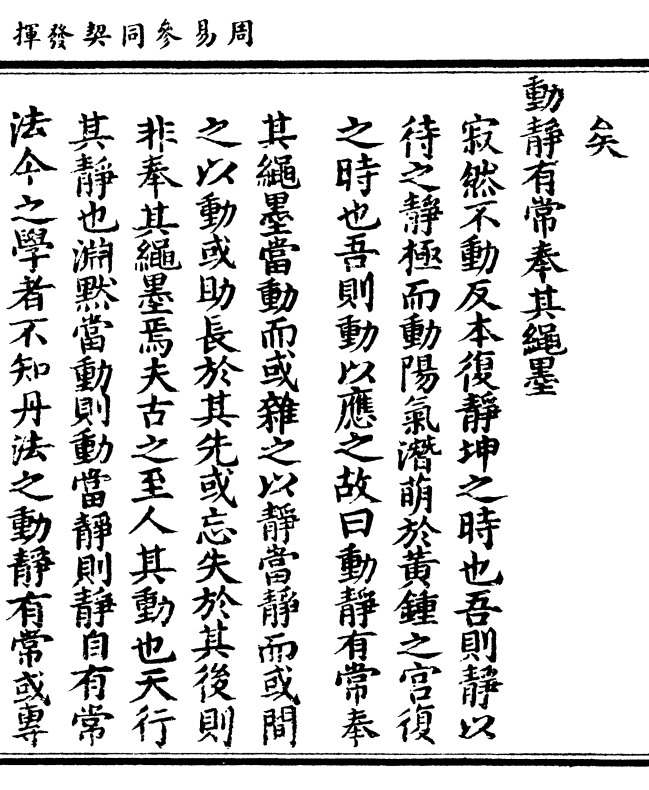 周易參同契發揮
矣
動靜有常奉其繩墨
寂然不動反本復靜坤之時也吾則靜以
待之靜極而動陽氣潛萌於黃鍾之宮復
之時也吾則動以應之故曰動靜有常奉
其繩墨當動而或雜之以靜當靜而或間
之以動或助長於其先或忘失於其後則
非奉其繩墨焉夫古之至人其動也天行
其靜也淵默當動則動當靜則靜自有常
法今之學者不知丹法之動靜有常或專